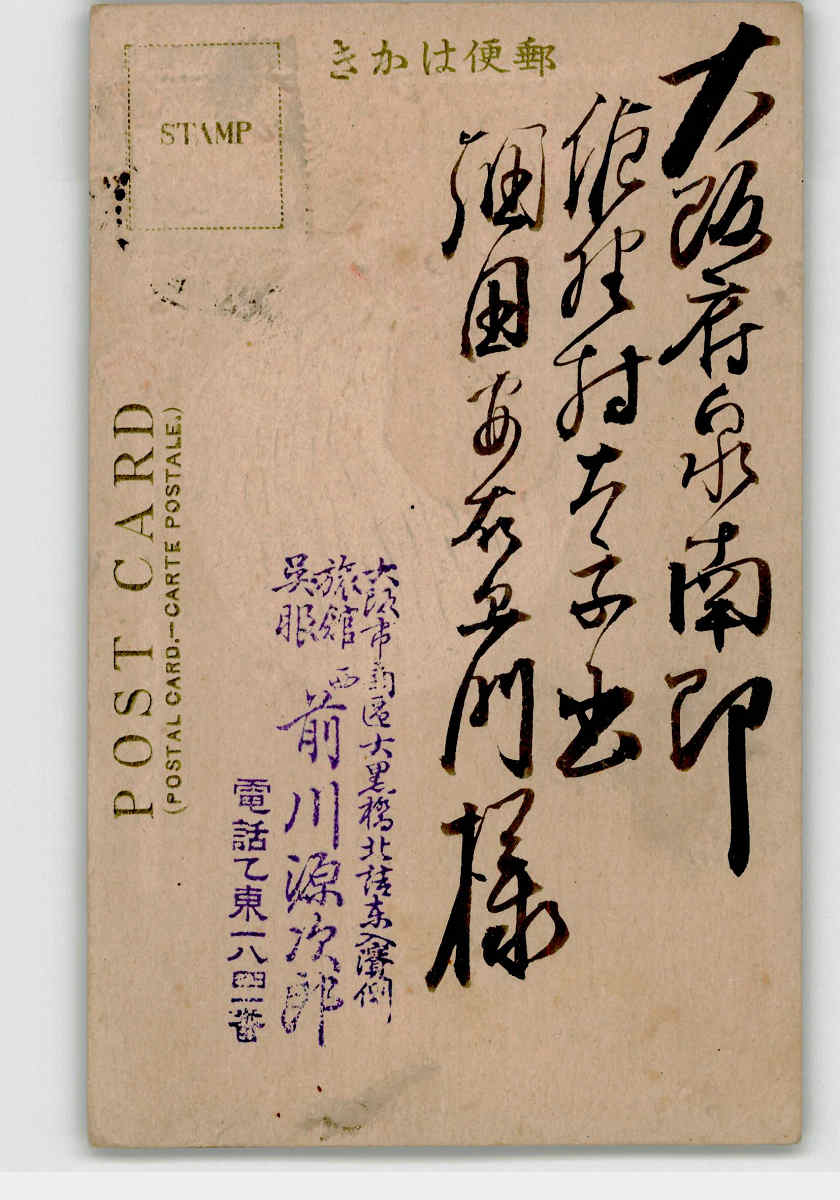 きかは便郵
STAMP
大阪府泉南郡
佐野村大字出
岡安右卫門様
大阪市南區大黒橋北詰東入濱側
旅館
呉服
西
前川源次郎
電話乙東一八四一番
POST CARD
(POSTAL CARD.—CARTE POSTALE.)